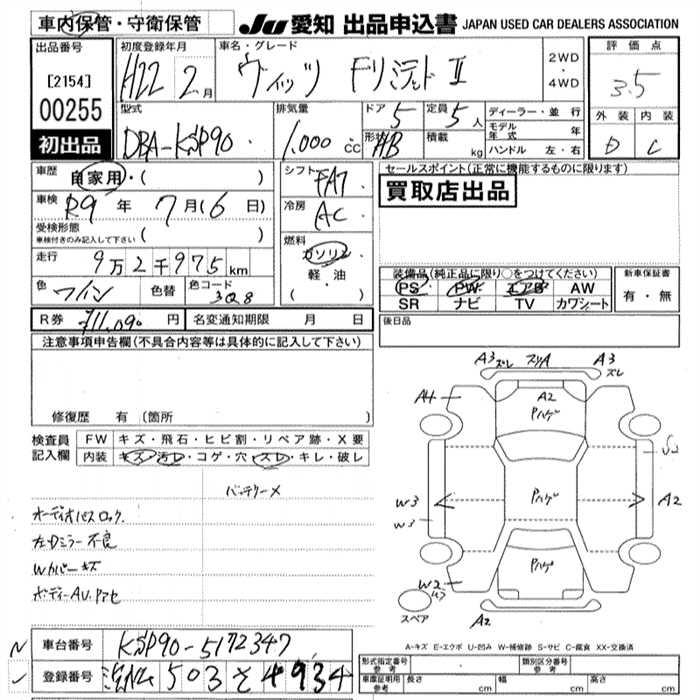 車内保管・守衛保管
JU 愛知 出品申込書 JAPAN USED CAR DEALERS ASSOCIATION
出品番号
[2154]
00255
初出品
初度登録年月
H22 2月
車名・グレード
ヴィッツ FリミテッドⅡ
2WD
・
4WD
評価点
3.5
外装 内装
D C
型式
DBA-KSP90
排気量
1,000cc
ドア 5
定員 5人
形状 HB
積載 kg
ディーラー・並行
モデル年式 年
ハンドル 左・右
車歴 自家用・( )
車検 R9年 7月(6日)
受検形態
車検付きのみ記入して下さい ( )
走行 9万2千975km
色 ワイン 色替 色コード 3Q8
R券 ¥11,090円 名変通知期限 月 日
シフト FAT
冷房 AC
燃料
ガソリン
軽・油
( ・ )
セールスポイント(正常に機能するものに限ります)
買取店出品
装備品(純正品に限り○をつけてください)
PS PW エアB AW
SR ナビ TV カワシート
新車保証書
有・無
後日品
注意事項申告欄(不具合内容等は具体的に記入して下さい)
修復歴 有 (箇所
検査員記入欄
FW キズ・飛石・ヒビ割・リペア跡・X要
内装 キズ・汚レ・コゲ・穴・スレ・キレ・破レ
バッテリーメ
オーディオパスロック
左Dミラー不良
Wカバーキズ
ボディーAU.Pアセ
A3 ズレ スリA A3 ズレ
A4 A2
Pハゲ
W3 Pハゲ A2
W3
Pハゲ
W2
A2
スペア
A-キズ E-エクボ U-凹み W-補修跡 S-サビ C-腐食 XX-交換済
車台番号 KSP90-5172347
登録番号 503 そ 4934
形式指定番号 参考 類別区分番号 参考
車庫証明用 参考 長さ cm 幅 cm 高さ cm